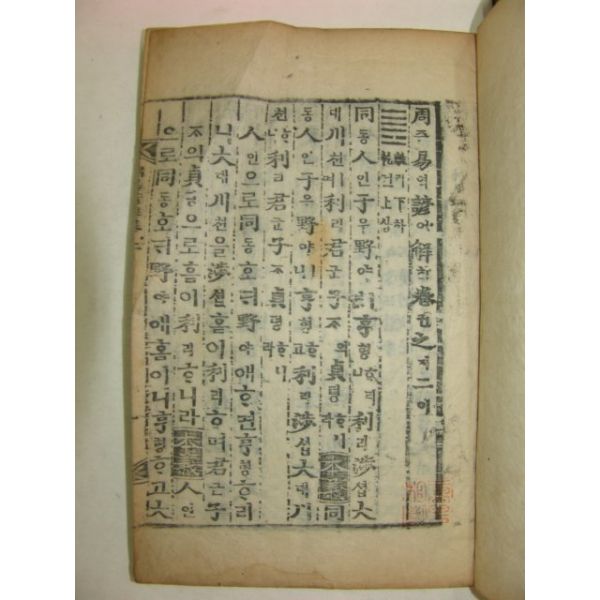 周쥬易역諺언解ᄒᆡ卷권之지二이
䷌ 離리下하 乾건上샹
同동人인于우野야ㅣ면亨형ᄒᆞ리니利리涉셥大
대川쳔이며利리君군子ᄌᆞ의貞뎡ᄒᆞ니라本義同
동人인于우野야ㅣ니亨형ᄒᆞ고利리涉셥大대川
쳔ᄒᆞ니利리君군子ᄌᆞ貞뎡ᄒᆞ니라
人인으로同동호ᄃᆡ野야애ᄒᆞ면亨형ᄒᆞ리
니大대川쳔을涉셥홈이利리ᄒᆞ며君군子
ᄌᆞ의貞뎡으로홈이利리ᄒᆞ니라本義人인
으로同동호ᄃᆡ野야애홈이니亨형ᄒᆞ고大